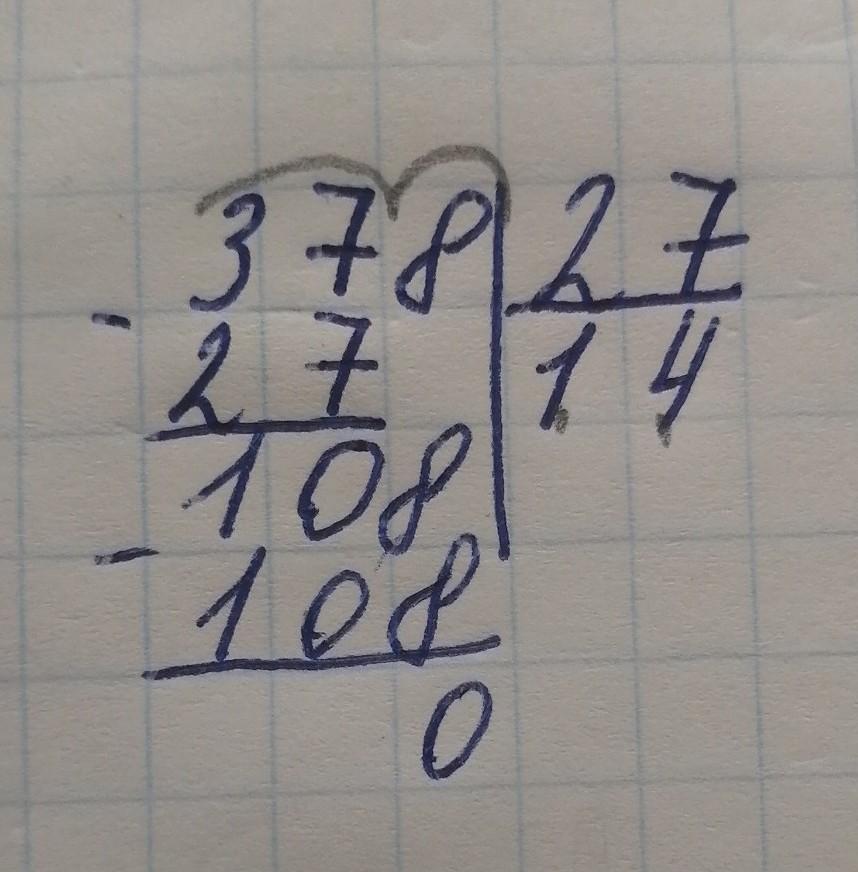 378|27
- 27 14
108
- 108
0